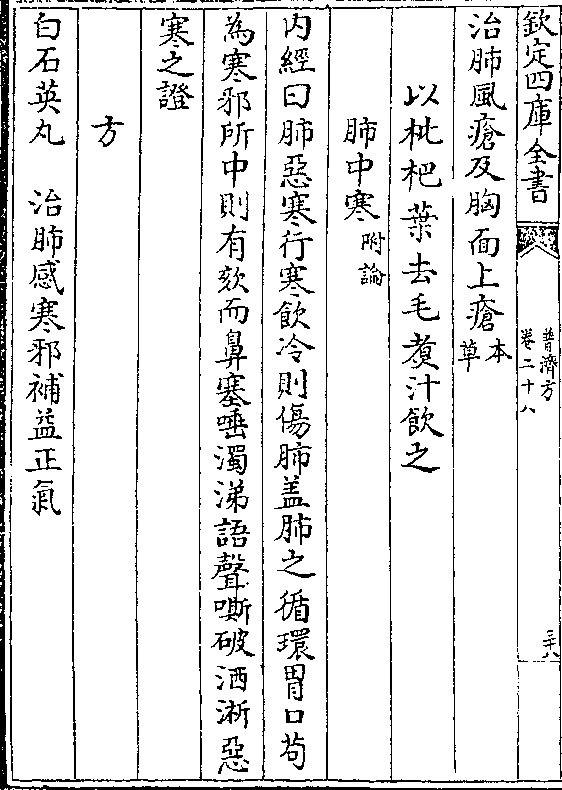 欽定四庫全書
普濟方
卷二十八
三十八
治肺風瘡及胸面上瘡本草
以枇杷葉去毛煑汁飲之
肺中寒附論
内經曰肺惡寒行寒飲冷則傷肺盖肺之循環胃口苟
為寒邪所中則有欬而鼻塞唾濁涕語聲嘶破洒淅惡
寒之證
方
白石英丸 治肺感寒邪補益正氣